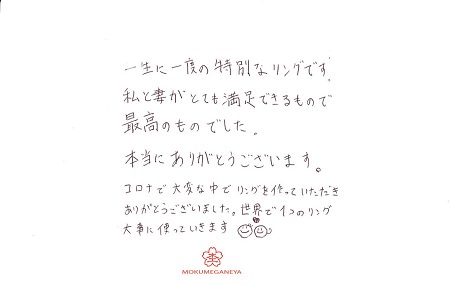 一生に一度の特別なリングです。
私と妻がとても満足できるもので
最高のものでした。
本当にありがとうございます。
コロナで大変な中でリングを作っていただき
ありがとうございました。世界で1つのリング
大事に使っていきます
MOKUMEGANEYA